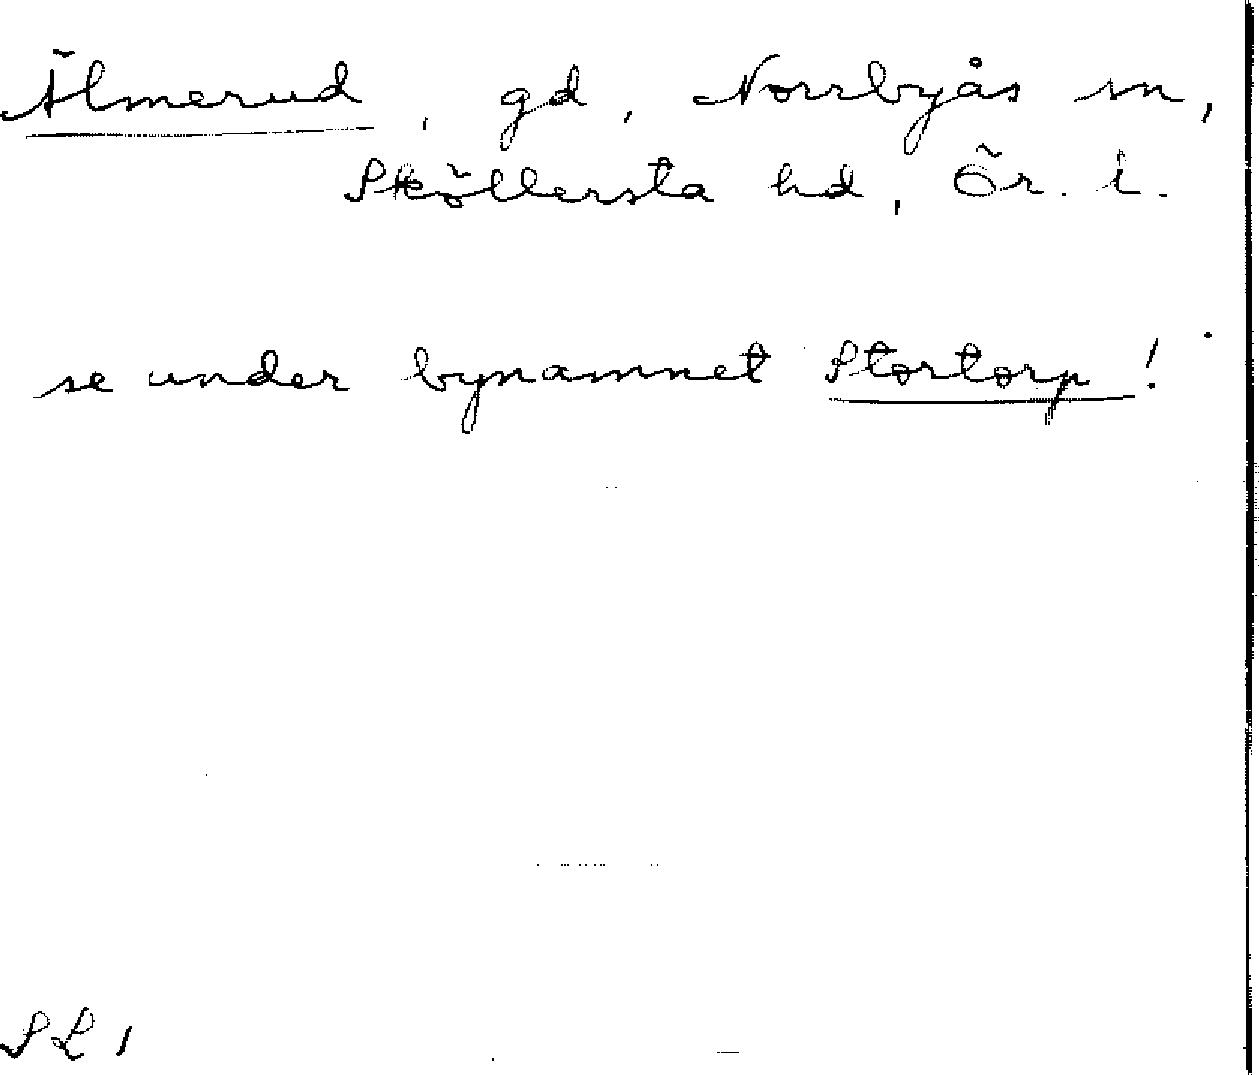 Älmerud, gd, Norrbyås sn,
Sköllersta hd, Ör. l.
se under bynamnet Stortorp!
SL1